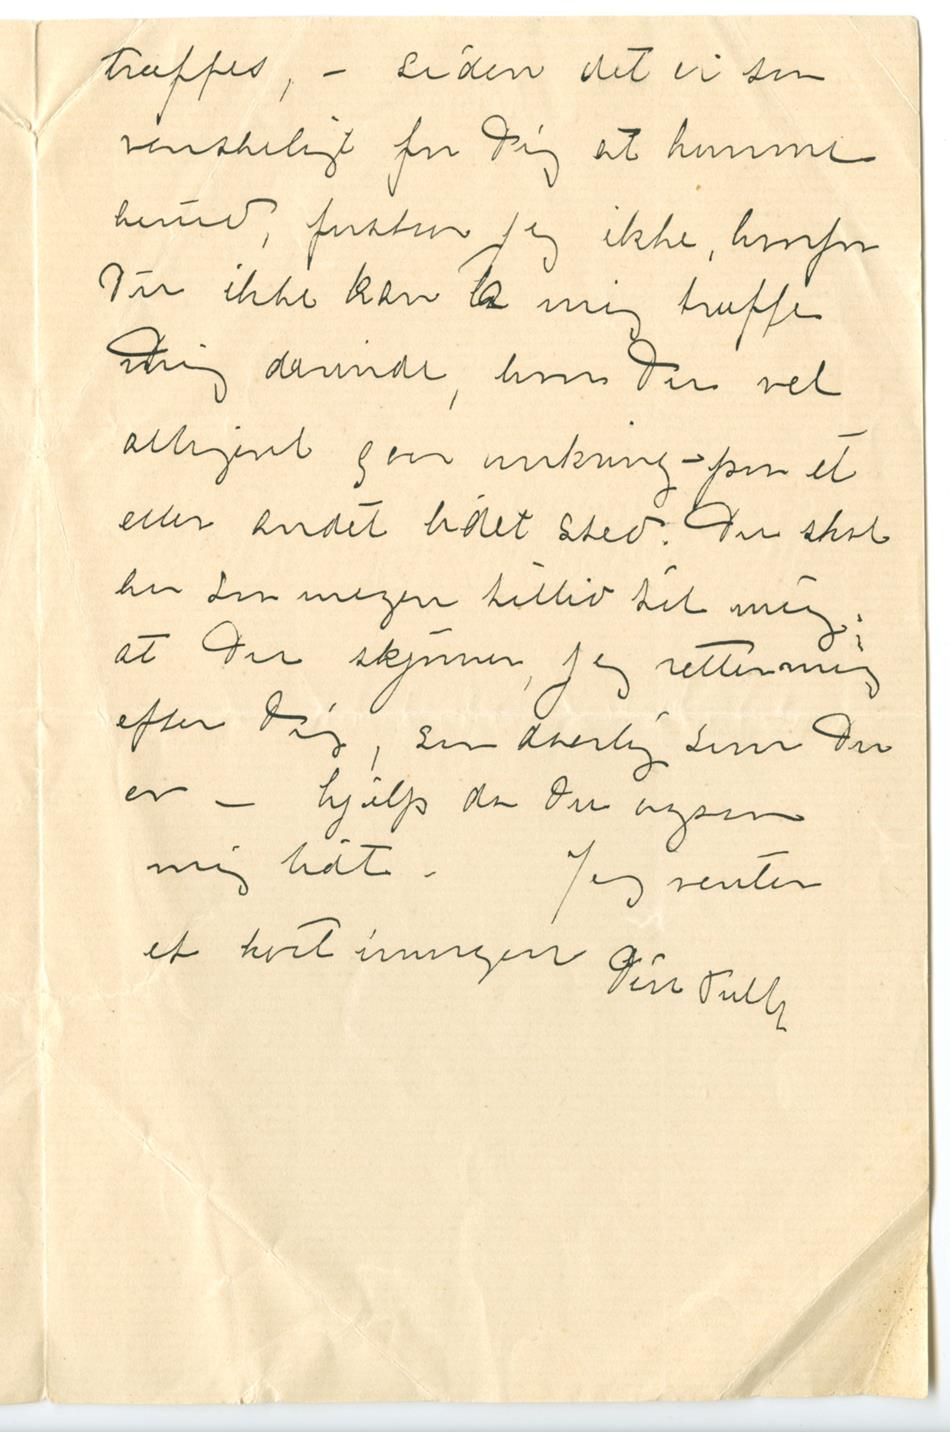 træffes, – siden det er saa
vanskeligt for Dig at komme
herud, forstaar jeg ikke, hvorfor
Du ikke kan la mig træffe
Dig derinde, hvor Du vel
alligevel gaar omkring – paa et
eller andet lidet sted. Du skal
ha saa megen tillid til mig,
at Du skjønner, jeg retter mig
efter Dig, saa daarlig som Du
er – hjælp da Du ogsaa
mig lidt. Jeg venter
et kort imorgen Din Tulla